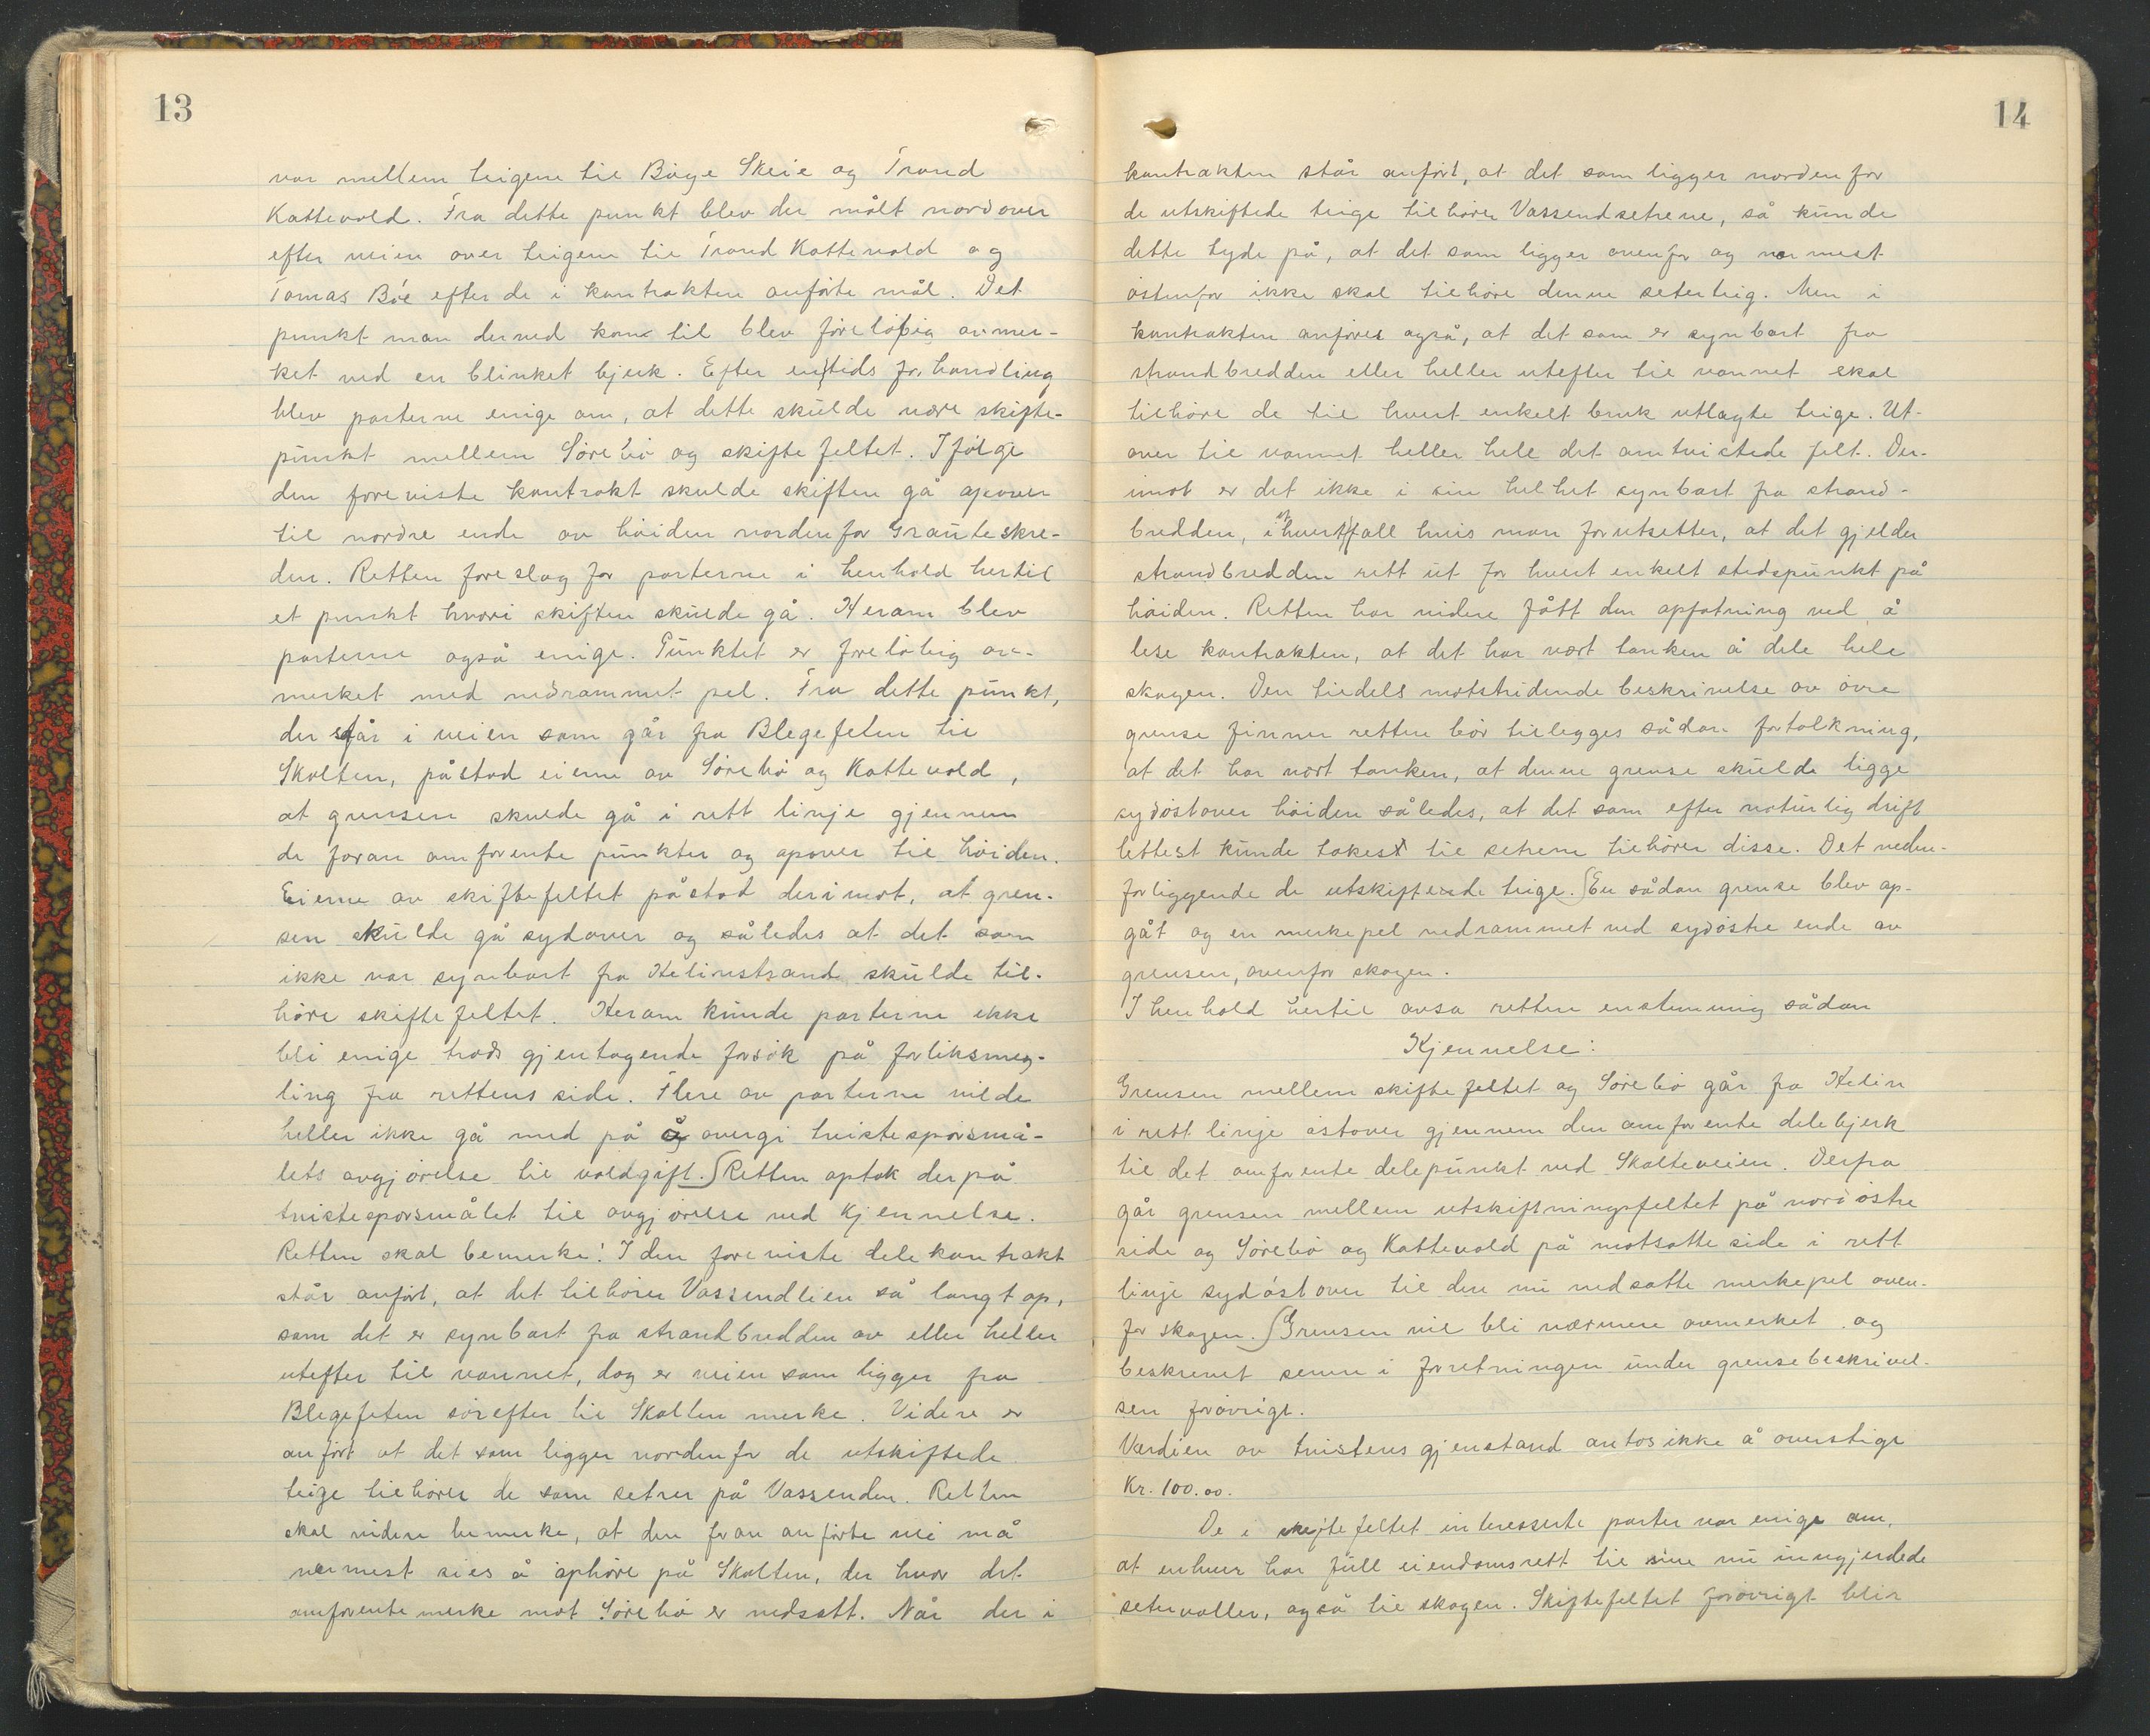 13
var mellem teigene til Båge Skeie og Trond
Kattevold. Fra dette punkt blev der målt nordover
efter veien over teigene til Trond Kattevold og
Tomas Böe efter de i kontrakten anförte mål. Det
punkt man derved kom til blev forelöbig avmer-
ket ved en blinket bjerk. Efter en tids forhandling
blev parterne enige om, at dette skulde være skifte-
punkt mellem Sörebö og skiftefeltet. Ifölge
den foreviste kontrakt skulde skiften gå opover
til nordre ende av höiden nordenfor Grauteskre-
den. Retten foreslog for parterne i henhold hertil
et punkt hvori skiften skulde gå. Herom blev
parterne også enige. Punktet er forelöbig av-
merket med nedrammet pel. Fra dette punkt,
der står i veien som går fra Blegefeten til
Skolten, påstod eierne av Sörebö og Kattevold,
at grensen skulde gå i rett linje gjennem
de foran omforente punkter og opover til höiden.
Eierne av skiftefeltet påstod derimot, at gren-
sen skulde gå sydover og således at det som
ikke var synbart fra Helinstrand skulde til-
höre skiftefeltet. Herom kunde parterne ikke
bli enige trods gjentagende forsök på forliksmeg-
ling fra rettens side. Flere av parterne vilde
heller ikke gå med på å overgi tvistespörsmå-
lets avgjörelse til voldgift. Retten optok derpå
tvistesporsmålet til avgjörelse ved Kjennelse.
Retten skal bemerke: I den foreviste delekontrakt
står anfört, at det tilhörer Vassendlien så langt op,
som det er synbart fra strandbredden av eller heller
utefter til vannet, dog er veien som ligger fra
Blegefeten sörefter til Skolten merke. Videre er
anfört at det som ligger nordenfor de utskiftede
teige tilhörer de som setrer på Vassenden. Retten
skal videre bemerke, at den foran anförte vei må
nærmest sies å ophöre på Skolten, der hvor det
omforente merke mot Sörebö er nedsatt. Når der i
14
kontrakten står anfört, at det som ligger nordenfor
de utskiftede teige tilhörer Vassendsetrene, så kunde
dette tyde på, at det som ligger ovenfor og nærmest
östenfor ikke skal tilhöre denne seterteig. Men i
kontrakten anföres også, at det som er synbart fra
strandbredden eller heller utefter til vannet skal
tilhöre de til hvert enkelt bruk utlagte teige. Ut-
over til vannet heller hele det omtvistede felt. Der-
imot er det ikke i sin helhet synbart fra strand-
bredden, i hvert fall hvis man forutsetter, at det gjelder
strandbredden rett ut for hvert enkelt stedspunkt på
höiden. Retten har videre fått den opfatning ved å
lese kontrakten, at det har vært tanken å dele hele
skogen. Den tildels motstridende beskrivelse av övre
grense finner retten bör tillegges sådan fortolkning,
at det har vært tanken, at denne grense skulde ligge
sydöstover höiden således, at det som efter naturlig drift
lettest kunde tokes til setrene tilhörer disse. Det neden-
forliggende de utskiftende teige. En sådan grense blev op-
gåt og en merkepel nedrammet ved sydöstre ende av
grensen, ovenfor skogen.
I henhold hertil avsa retten enstemmig sådan
Kjennelse:
Grensen mellem skiftefeltet og Sörebö går fra Helin
i rett linje östover gjennem den omforente delebjerk
til det omforente delepunkt ved Skolteveien. Derfra
går grensen mellem utskiftningsfeltet på nordöstre
side og Sörebö og Kattevold på motsatte side i rett
linje sydöstover til den nu nedsatte merkepel oven-
for skogen. Grensen vil bli nærmere avmerket og
beskrevet senere i forretningen under grensebeskrivel-
sen forövrigt.
Verdien av tvistens gjenstand antos ikke å overstige
Kr. 100.00.
De i skiftefeltet interesserte parter var enige om,
at enhver har full eiendomsrett til sine nu inngjerdede
setervoller, også til skogen. Skiftefeltet forövrigt blir